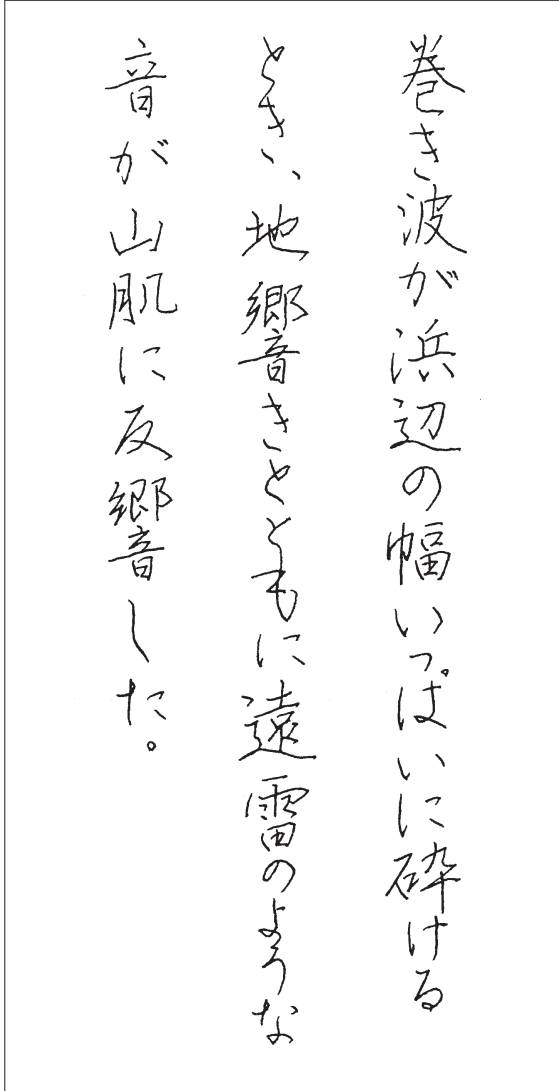 巻き波が浜辺の幅いっぱいに砕ける
とき、地響きとともに遠雷のような
音が山肌に反響した。